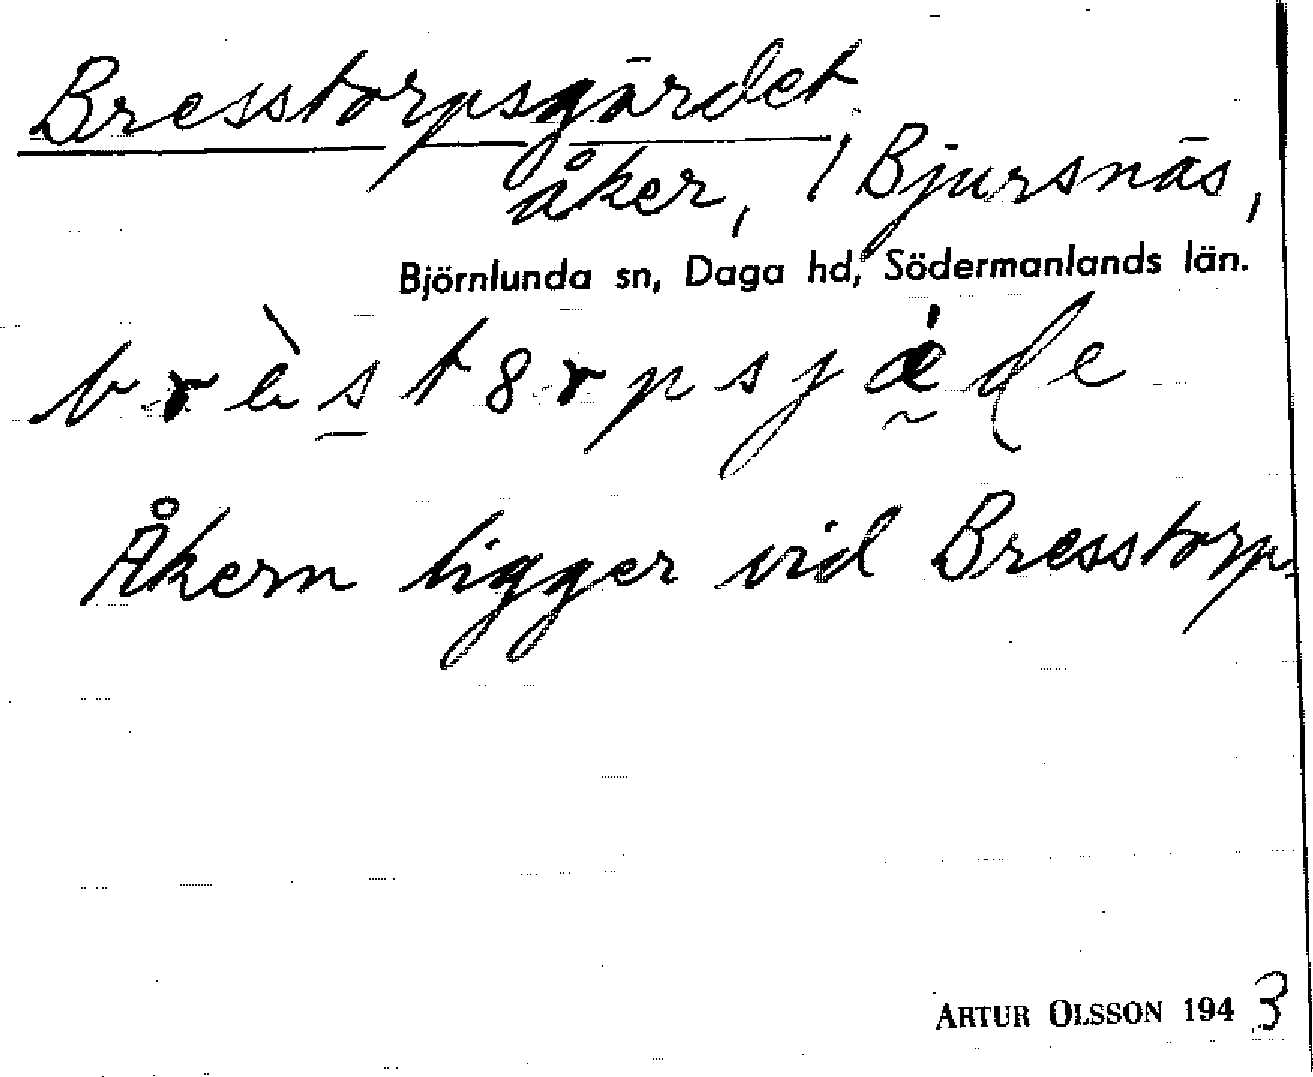 Bresstorpsgärdet
åker, / Bjursnäs,
Björnlunda sn, Daga hd, Södermanlands län.
brèstorpsjǽde
Åkern ligger vid Bresstorp
ARTUR OLSSON 1943